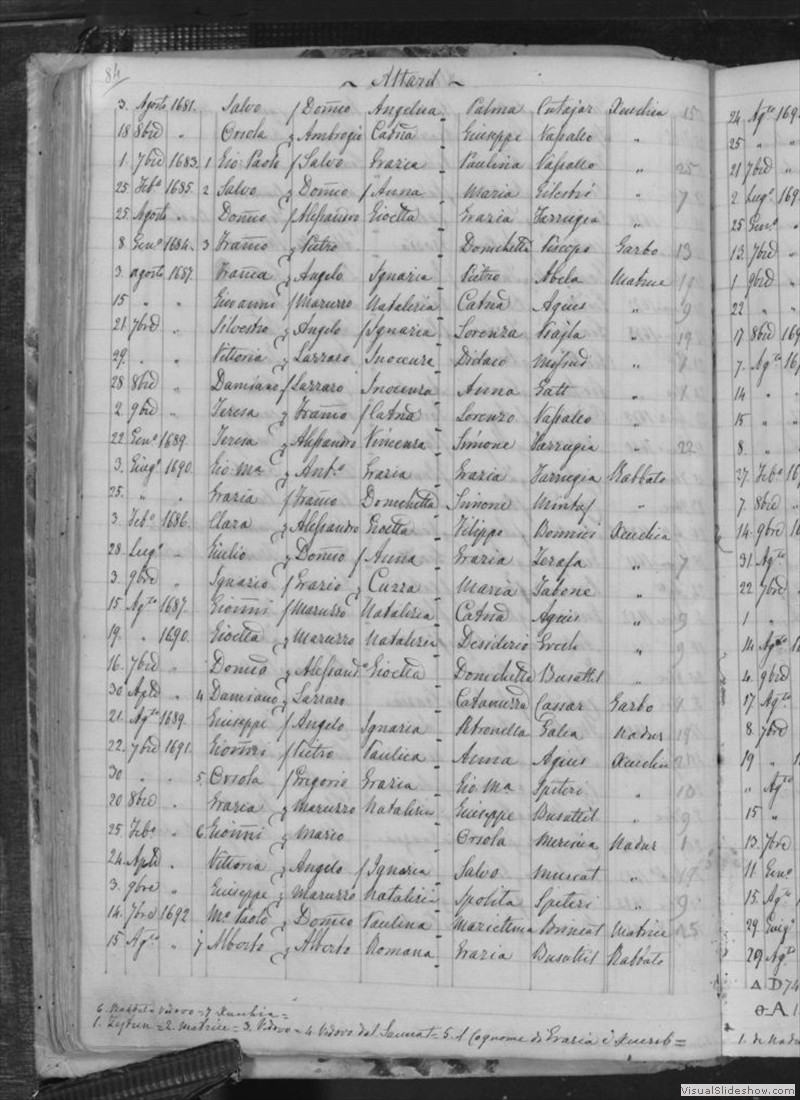 84
~ Attard ~
3. Agosto 1681. Salvo f Domco Angelica Palma Cutajar Xeuchia 15
18 8bre " Orsola Ambrogio Catna Giuseppe Vassallo "
1. 7bre 1683. 1 Gio Paolo f Salvo Grazia Paulina Vassallo " 25
25 Feb° 1685. 2 Salvo Domco f Anna Maria " 7
25 Agosto " Domco f Alessandro Gioetta Grazia Farrugia "
8 Gen° 1684. 3 Franco Pietro Domchetta Piscopo Garbo 13
3. agosto 1687. Franca Angelo Ignazia Pietro Abela Matrice 11
15 " " Giovanni f Maruzzo Natalizia Catna Agius " 9
21. 7bre " Silvestro Angelo f Ignazia Lorenza Vajla " 19
29. " " Vittoria Lazzaro Inocenza Didaco Mifsud "
28 8bre " Damiano f Lazzaro Inocenza Anna Gatt " 1
2. 9bre " Teresa Franco f Catna Lorenzo Vassallo "
22 Gen° 1689. Teresa Alessandro Vincenza Simone Farrugia " 22
3. Giug° 1690. Gio Ma Ant° Grazia Grazia Farrugia Rabbato
25. " " Grazia f Franco Domchetta Simone Mintof "
3. Feb° 1686. Clara Alessandro Gioetta Filippo Bonnici Xeuchia
28 Lug° " Giulio Domco f Anna Grazia Zerafa " 7
3. 9bre " Ignazio f Grazio Curza Maria Tabone "
15 Ag.to 1687. Gionni f Maruzzo Natalizia Catna Agius " 9
19. " 1690. Gioetta Maruzzo Natalizia Desiderio Grech " 9
16. 7bre " Domca Alessand° Gioetta Domchetta Busuttil "
30 Aple " 4 Damiano Lazzaro Catarinuzza Cassar Garbo 1
21. Ag.to 1689. Giuseppe f Angelo Ignazia Petronella Galea Nadur 19
22. 7bre 1691. Gionni f Pietro Paulica Anna Agius Xeuchia
30 " " 5. Orsola f Gregorio Grazia Gio Ma Spiteri " 10
20 8bre " Grazia Maruzzo Natalizia Giuseppe Busuttil " 9
25. Feb° " 6. Gionni Mario Orsola Mercieca Nadur 1
24. Aple " Vittoria Angelo f Ignazia Salvo Muscat " 19
3. 9bre " Giuseppe Maruzzo Natalizia Spolita Spiteri " 9
14. 7bre 1692 Ma Paolo Domco Paulina Mariettina Matrice 15
15 Ag.to " 7 Alberto Alberto Romana Grazia Busuttil Rabbato
6. Rabbato Vedovo = 7. Xeuchia =
1. Zejtun = 2. Matrice = 3. Vedovo = 4. Vedovo dal Sannat = 5. Il Cognome di Grazia è Xuereb =
24 Ag.to 169
25 " "
21 7bre "
2 Lug° 169
25 Gen° "
13. 7bre "
1 9bre "
22 " "
17 8bre 169
7. Ag.to
14 " "
15 " "
8. " "
27. Feb°
7. 8bre "
14. 9bre 1
31. Ag.to
22. 7bre
1 "
14. Ag.to
4. 9bre
17 Ag.to
8. 7bre
19 "
" Ag.to
15 "
13. 7bre
11. Gen°
15. Ag.to
29 Giug°
29 Ag.to
Δ D 74
θ-A 1
1. de Nadu
VisualSlideshow.com